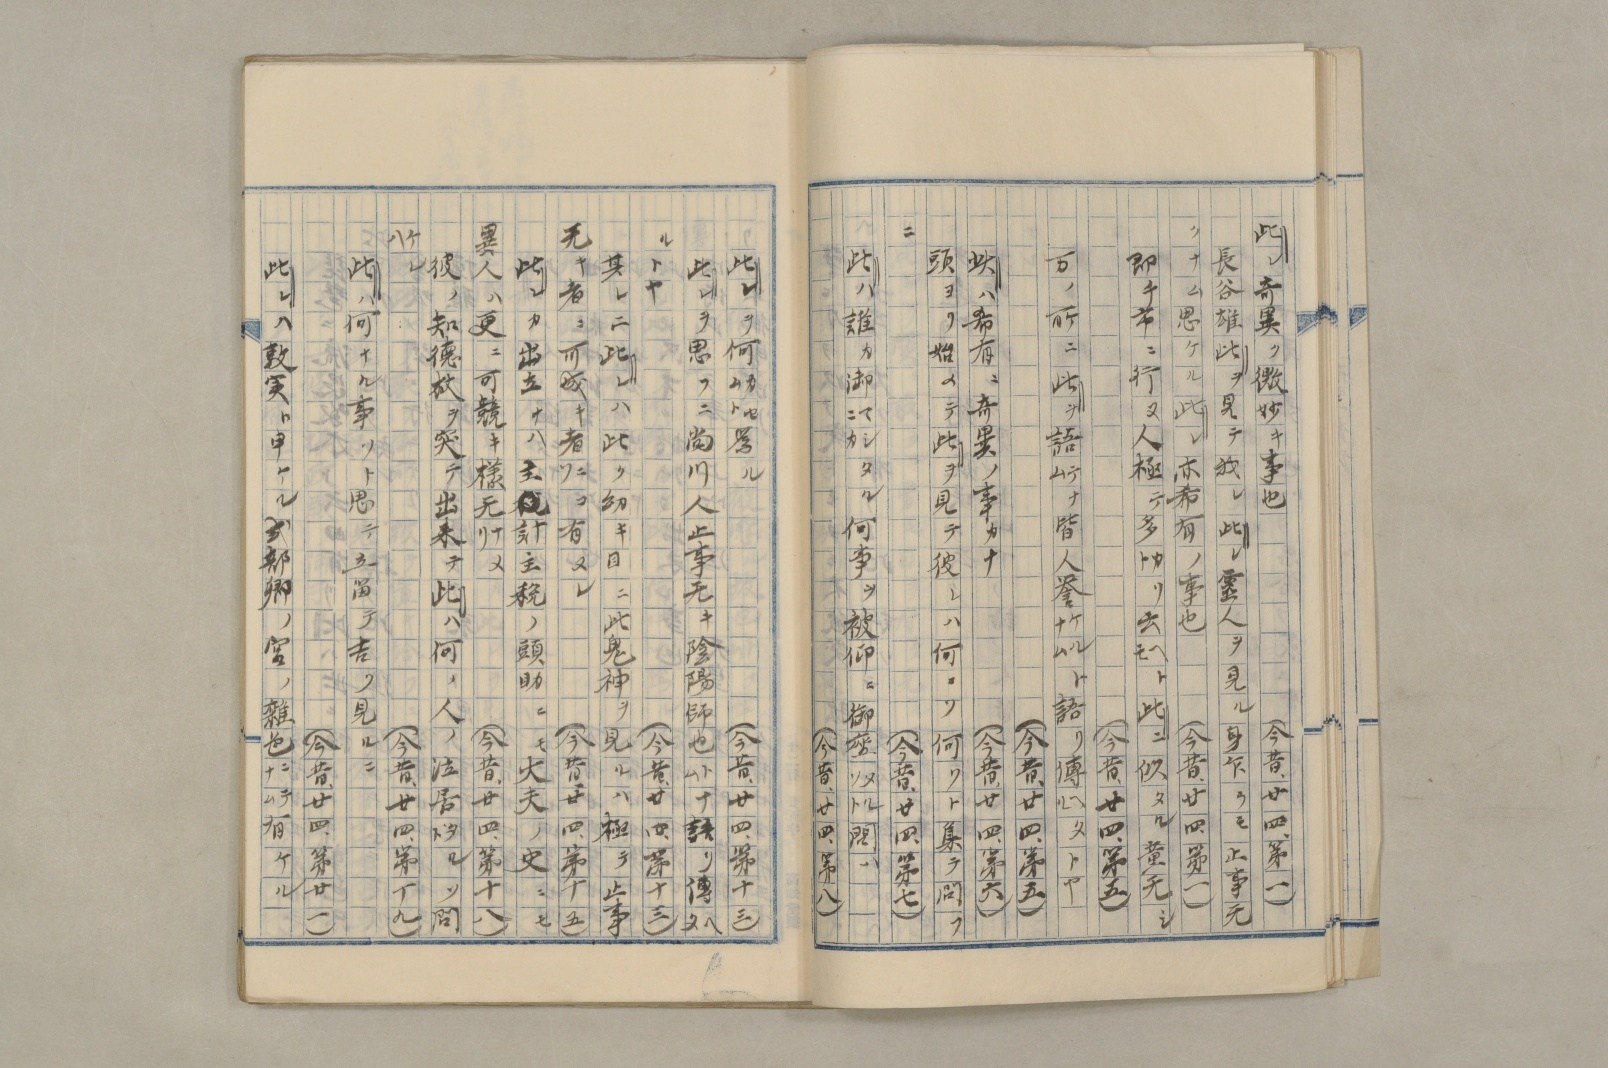 此レ奇異ク微妙キ事也
（今昔、廿四、第一）
長谷雄此ヲ見テ我レ此レ霊人ヲ見ル身乍ラモ止事元
クナム思ケル此レ亦希有ノ事也
（今昔、廿四、第一）
即チ共ニ行ヌ人極テ多カリト云ヘトモ此ニ似タル童无シ
（今昔、廿四、第五）
万ノ所ニ此ヲ語テナム皆人誉ケルトナム語リ傳ヘタルトヤ
（今昔、廿四、第五）
此ハ希有ニ奇異ノ事カナ
（今昔、廿四、第六）
頭ヨリ始メテ此ヲ見テ彼レハ何コソ何ソト集テ問フ
ニ
（今昔、廿四、第七）
此ハ誰カ御マシタルニカ何事ヲ被仰ニ御座ツルソト問ハ
（今昔、廿四、第八）
此レヲ何カセムト為ル
（今昔、廿四、第十三）
此レヲ思フニ尚川人止事无キ陰陽師也トナム語リ傳ヘタ
ルトヤ
（今昔、廿四、第十三）
其レニ此レハ此ク幼キ目ニ此鬼神ヲ見ルハ極テ止事
无キ者ニ可成キ者ニコソ有メレ
（今昔、廿四、第十五）
此レカ出立ナハ主計主税ノ頭助ニモ大夫ノ史ニモ
異人ハ更ニ可競キ様无カリナメリ
（今昔、廿四、第十八）
彼ノ知徳杖ヲ突テ出来テ此ハ何ノ人ノ泣居タルソト問
ケレハ
（今昔、廿四、第十九）
此ハ何ナル事ソト思テ立留テ吉ク見ルニ
（今昔、廿四、第廿一）
此レハ敦実ト申ケル式部卿ノ宮ノ雑色ニテナム有ケル